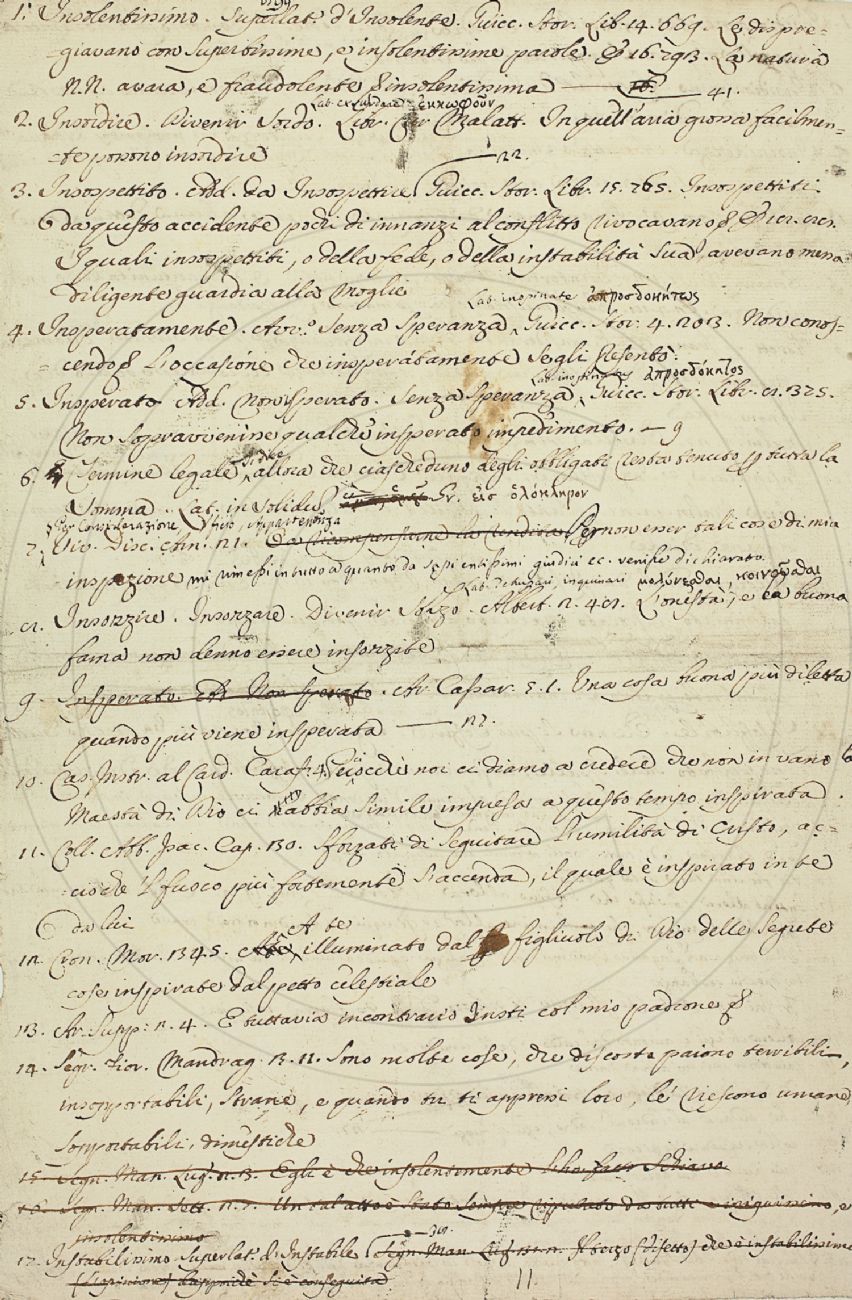 1. Insolentissimo. Superlat.º d'Insolente. Guicc. Stor. Lib. 14. 669. Le dispre=
=giavano con superbissime, e insolentissime parole. E 16. 793. La natura
N.N. avara, e fraudolente insolentissima — 41.
Lat. exsurdare ἐκκωφοῦν
2. Insordire. Divenir sordo. Libr. Cur. Malatt. In quell'aria grossa facilmen=
=te possono insordire
22.
3. Insospettito. Add. da Insospettire. Guicc. Stor. Libr. 15. 765. Insospettiti
da questo accidente pochi di innanzi al conflitto rivocavano
I quali insospettiti, o della fede, o della instabilità sua, avevano messa
diligente guardia alla moglie
Lat. inopinate ἀπροσδοκήτως
4. Insperatamente. Avv.º Senza speranza. Guicc. Stor. 4. 203. Non conos=
=cendo l'occasione che insperatamente segli presentò.
ἀπροσδόκητος
5. Insperato Add. Non isperato. Senza speranza. Guicc. Stor. Libr. 8. 325.
Non sopravvenisse qualche insperato impedimento. — 9
6. Termine legale, allora che ciascheduno degli obbligati resta tenuto p tutta la
somma. Lat. in solidum Gr. εἰσ ὁλόκληρον
Per Considerazione Appartenenza
7. Viv. Disc. Arn. 21. Per non esser tali cose di mia
inspezione mi rimessi in tutto a quanto da sapientissimi giudici ec. venisse dichiarato.
inquinari μολύνεσθαι, κοινοῦσθαι
8. Insozzire. Insozzare. Divenir sozzo. Albert. 2. 48. L'onestà, e la buona
fama non denno essere insozzite
9. Insperato. Add. Non sperato. Ar. Cassar. 5. 1. Una cosa buona più diletta
quando più viene insperata — 12.
10. Cas. Instr. al Card. Caraf. 4. Sicchè noi ci diamo a credere che non in vano la
Maestà di Dio ci abbia simile impresa a questo tempo inspirata.
11. Coll. Abb. Isac. Cap. 130. Sforzati di seguitare l'umiltà di Cristo, ac=
=ciochè 'l fuoco più fortemente s'accenda, il quale è inspirato in te
da lui
A te
12. Cron. Mor. 1345. illuminato dal figliuolo di Dio delle segrete
cose inspirate dal petto celestiale
13. Ar. Supp: 2. 4. E tuttavia incontracci Insti col mio padrone
14. Segr. Fior. Mandrag. 3. 11. Sono molte cose, che discosto paiono terribili,
insopportabili, strane, e quando tu ti appressi loro, le riescono umane,
sopportabili, dimestiche
15. Segn. Man. Lug. 2. 3. Egli è che insolentemente schiavo
16. Segn. Man. Sett. 2. 2. Un tal atto è stato sempre riputato da tutti e iniquissimo, e
insolentissimo
17. Instabilissimo Superlat. d'Instabile Segn. Man. Lug. (difetto) che è instabilissimo
si è conseguita
11